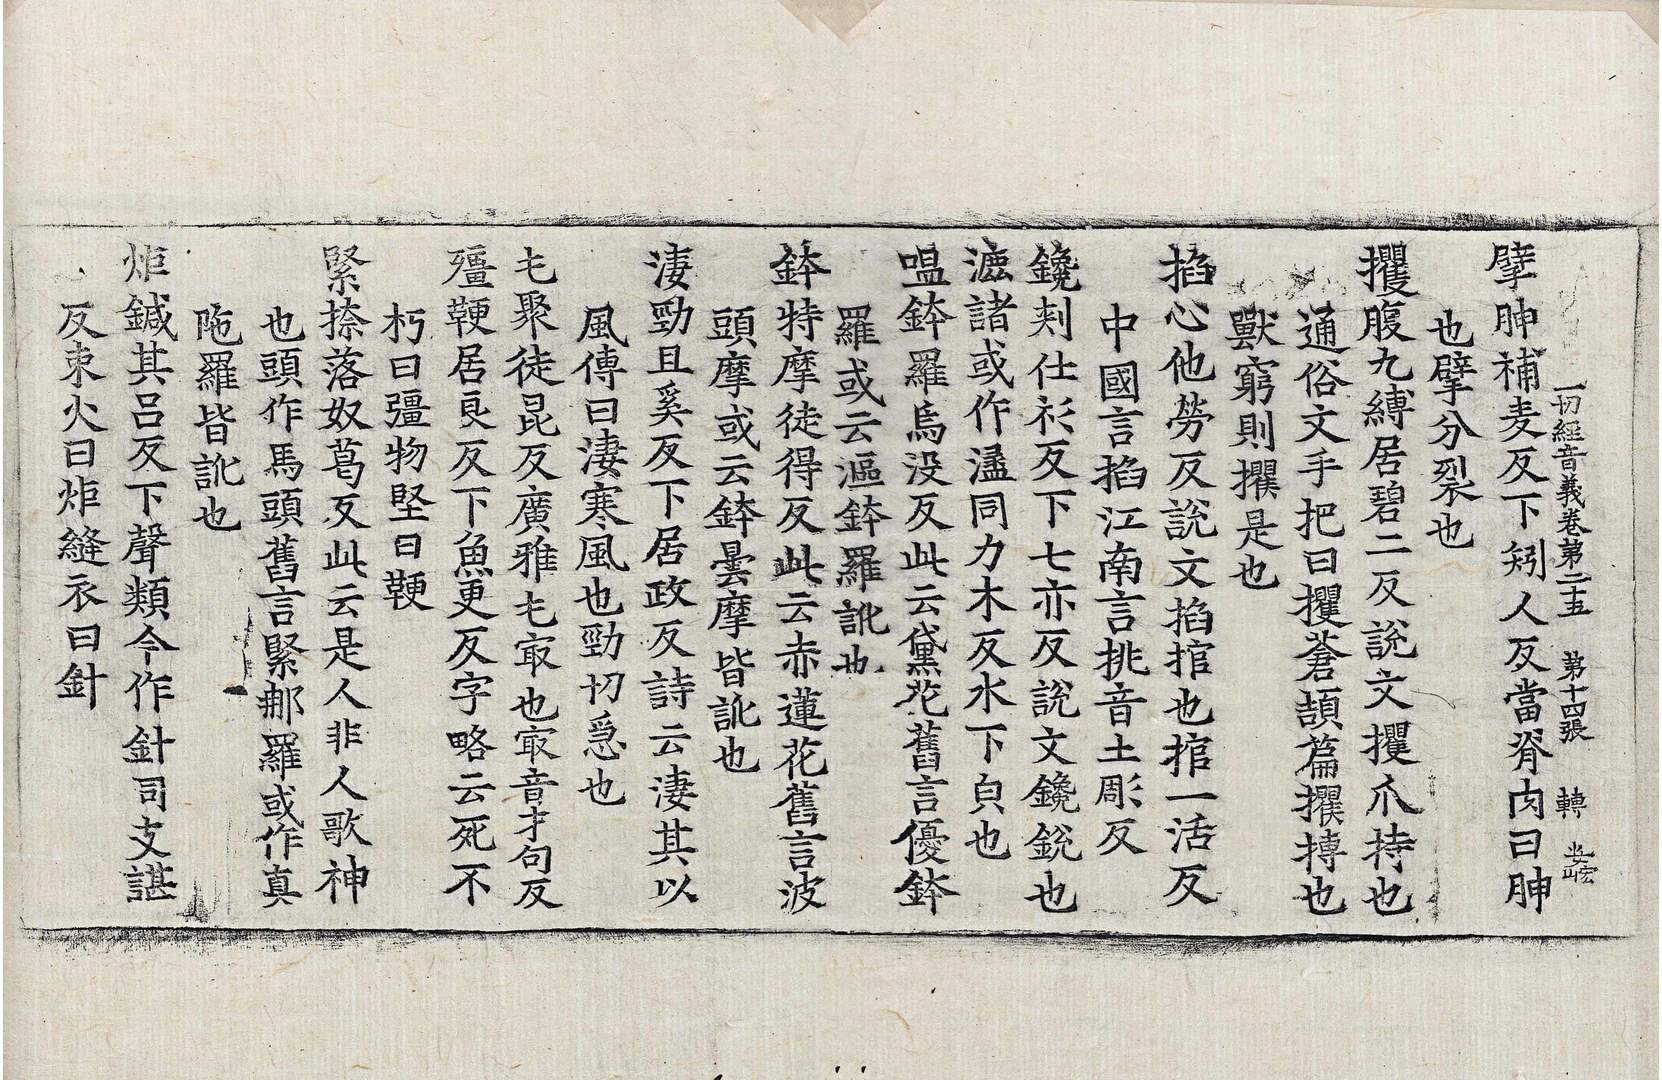 一切經音義卷第二十五 第十四張 轉
擘胂補麦反下矧人反當脊肉曰胂
也擘分裂也
攫腹九縛居碧二反說文攫爪持也
通俗文手把曰攫蒼頡篇攫搏也
獸窮則攫是也
掐心他勞反說文掐捾也捾一活反
中國言掐江南言挑音土彫反
鑱刾仕衫反下七亦反說文鑱銳也
漉諸或作盪同力木反水下皃也
嗢鉢羅烏没反此云黛花舊言優鉢
羅或云漚鉢羅訛也
鉢特摩徒得反此云赤蓮花舊言波
頭摩或云鉢曇摩皆訛也
淒勁且奚反下居政反詩云淒其以
風傳曰淒寒風也勁切急也
屯聚徒昆反廣雅屯冣也冣音才句反
殭鞕居良反下魚更反字略云死不
朽曰殭物堅曰鞕
緊捺落奴葛反此云是人非人歌神
也頭作馬頭舊言緊那羅或作真
陁羅皆訛也
炬鍼其呂反下聲類今作針同支諶
反束火曰炬縫衣曰針